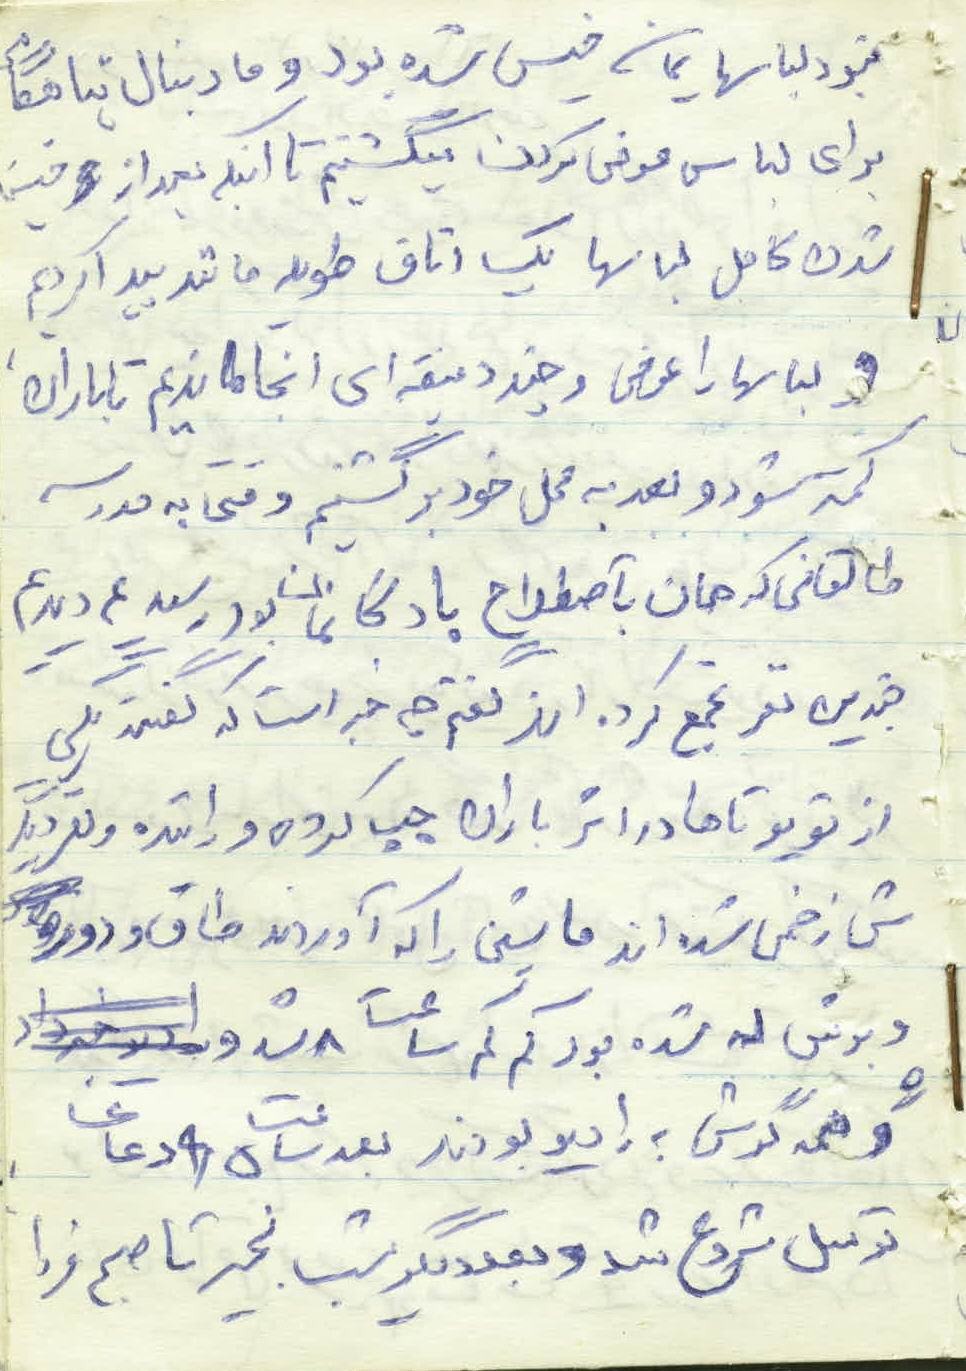 نبود لباسهایمان خیس شده بود و ما دنبال پناهگاه
برای لباس عوض کردن میگشتیم تا اینکه بعد از خیس
شدن کامل لباسها یک اتاق طویله مانند پیدا کردیم
و لباسها را عوض و چند دقیقه ای انجا ماندیم تا باران
کمتر شود و بعد به محل خود برگشتیم وقتی به مدرسه
طالقانی که همان باصطلاح پادگانمان بود رسیدیم دیدیم
چندین نفر تجمع کرده اند گفتم چه خبر است که گفتند یکی
از تویوتاها در اثر باران چپ کرده و راننده و
زخمی شده اند ماشین را که آوردند طاق و دور
و برش له شده بود کم کم ساعت ۸ شد و
و همه گوش به رادیو بودند بعد ساعت دعای
توسل شروع شد و بعد دیگر شب بخیر تا صبح فردا